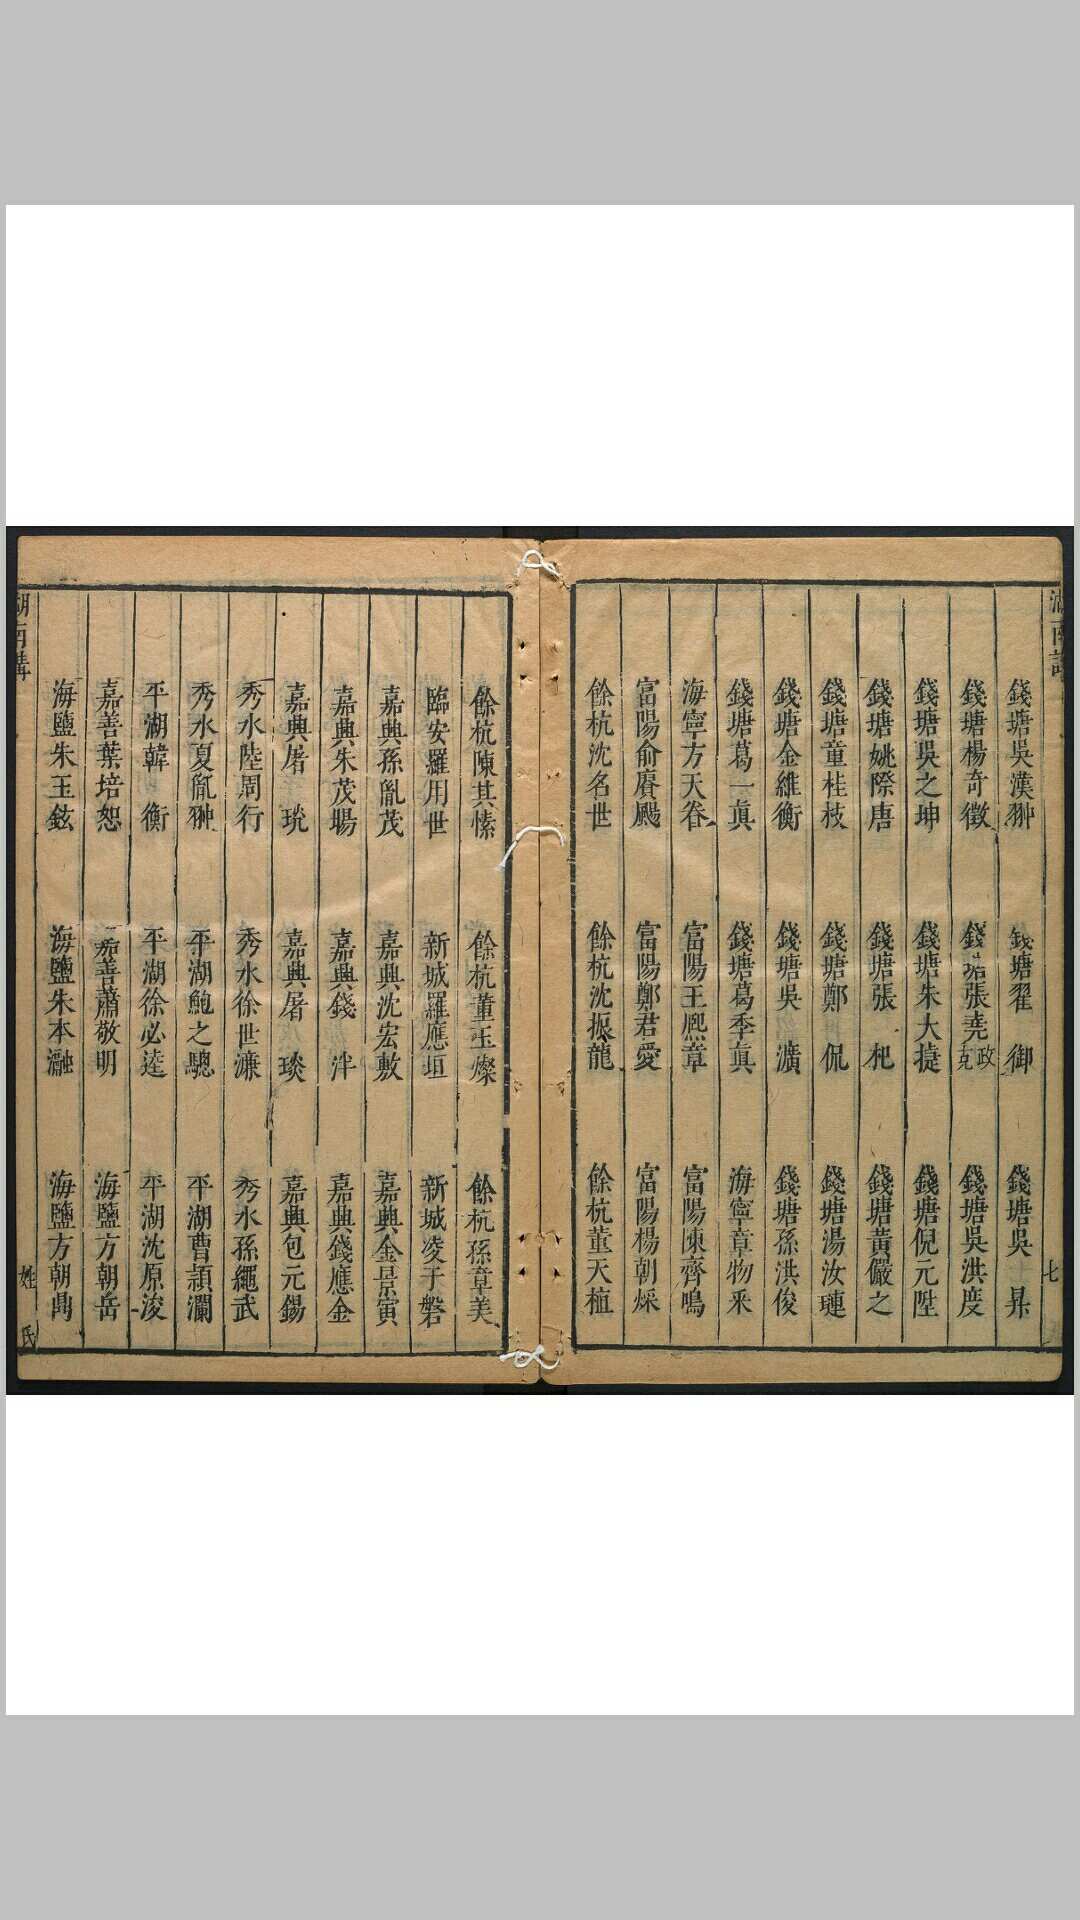 錢塘吳漢翀 錢塘翟 御 錢塘吳 昇
錢塘楊奇徵 錢塘張堯政克 錢塘吳洪度
錢塘吳之坤 錢塘朱大㨗 錢塘倪元陞
錢塘姚際唐 錢塘張 杞 錢塘黃儼之
錢塘童桂枝 錢塘鄭 侃 錢塘湯汝璉
錢塘金維衡 錢塘吳 瀇 錢塘孫洪俊
錢塘葛一眞 錢塘葛季眞 海寧章物采
海寧方天眷 富陽王熈章 富陽陳齊鳴
富陽俞賡颺 富陽鄭君愛 富陽楊朝埰
餘杭沈名世 餘杭沈振龍 餘杭董天植
餘杭陳其愫 餘杭董玉燦 餘杭孫章美
臨安羅用世 新城羅應垣 新城凌于磐
嘉興孫胤茂 嘉興沈宏敷 嘉興金景寅
嘉興朱茂暘 嘉興錢 泮 嘉興錢應金
嘉興屠 珫 嘉興屠 琰 嘉興包元錫
秀水陸周行 秀水徐世濂 秀水孫繩武
秀水夏胤翀 平湖鮑之驄 平湖曹頴瀾
平湖韓 衡 平湖徐必逵 平湖沈原浚
嘉善葉培恕 嘉善蕭敬明 海鹽方朝岳
海鹽朱玉鉉 海鹽朱本瀜 海鹽方朝鼎
湖南講 姓氏 七